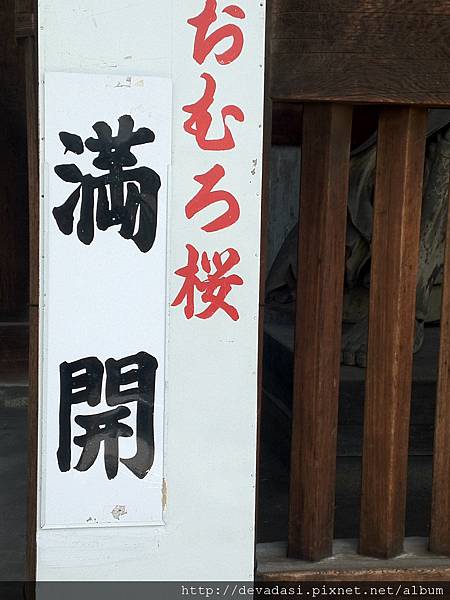 おむろ桜
満開
http://devadasi.pixnet.net/album